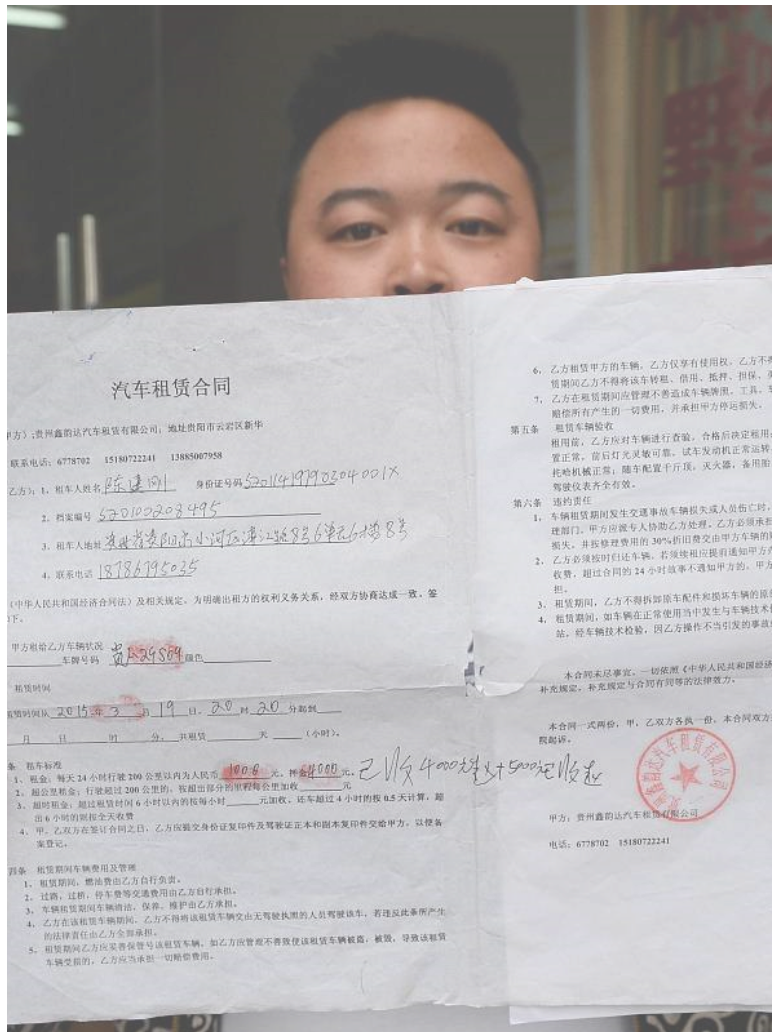 汽车租赁合同
甲方):贵州鑫韵达汽车租赁有限公司;地址贵阳市云岩区新华
联系电话:6778702 15180722241 13885007958
乙方):1、租车人姓名陈建刚 身份证号码52011419790304001X
2、档案编号520100208495
3、租车人地址贵州省贵阳市小河区漓江路8号6单元6楼8号
4、联系电话18786795035
《中华人民共和国经济合同法》及相关规定,为明确出租方的权利义务关系,经双方协商达成一致,签
下。
甲方租给乙方车辆状况
车牌号码 颜色
租赁时间
租赁时间从2015年3月19日,20时20分起到
月 日 时 分,共租赁 天 (小时)。
条 租车标准
1、租金:每天24小时行驶200公里以内为人民币 元,押金4000元,已收4000元
2、超公里租金:行驶超过200公里的,按超出部分的里程每公里加收 元
3、超时租金:超过租赁时间6小时以内的按每小时 元加收,还车超过4小时的按0.5天计算,超
出6小时的则按全天收费
4、甲、乙双方在签订合同之日,乙方应提交身份证复印件及驾驶证正本和副本复印件交给甲方,以便备
案登记。
四条 租赁期间车辆费用及管理
1、租赁期间,燃油费由乙方自行负责。
2、过路、过桥、停车费等交通费用由乙方自行承担。
3、车辆租赁期间车辆清洁、保养、维护由乙方承担。
4、乙方在该租赁车辆期间,乙方不得将该租赁车辆交由无驾驶执照的人员驾驶该车,若违反此条所产生
的法律责任由乙方全部承担。
5、租赁期间乙方应妥善保管号该租赁车辆,如乙方应管理不善致使该租赁车辆被盗,被毁,导致该租赁
车辆受损的,乙方应当承担一切赔偿费用。
6、乙方租赁甲方的车辆,乙方仅享有使用权,乙方不得
赁期间乙方不得将该车转租、借用、抵押、担保、
7、乙方在租赁期间应管理不善造成车辆牌照、工具、
赔偿所有产生的一切费用,并承担甲方停运损失。
第五条 租赁车辆验收
租用前,乙方应对车辆进行查验,合格后决定租用
置正常,前后灯光灵敏可靠,试车发动机正常运转
托哈机械正常;随车配置千斤顶,灭火器,备用胎
驾驶仪表齐全有效。
第六条 违约责任
1、车辆租赁期间发生交通事故车辆损失或人员伤亡时,
理部门,甲方应派专人协助乙方处理。乙方必须承担
损失,并按修理费用的30%折旧费交由甲方车辆的
2、乙方必须按时归还车辆。若须续租应提前通知甲方
收费,超过合同的24小时故事不通知甲方的,甲方
担。
3、租赁期间,乙方不得拆卸原车配件和损坏车辆的原
4、租赁期间,如车辆在正常使用当中发生与车辆技术
站,经车辆技术检验,因乙方操作不当引发的事故
本合同未尽事宜,一切依照《中华人民共和国经济
补充规定,补充规定与合同有同等的法律效力。
本合同一式两份,甲、乙双方各执一份,本合同双方
院起诉。
甲方:贵州鑫韵达汽车租赁有限公司
电话:6778702 15180722241